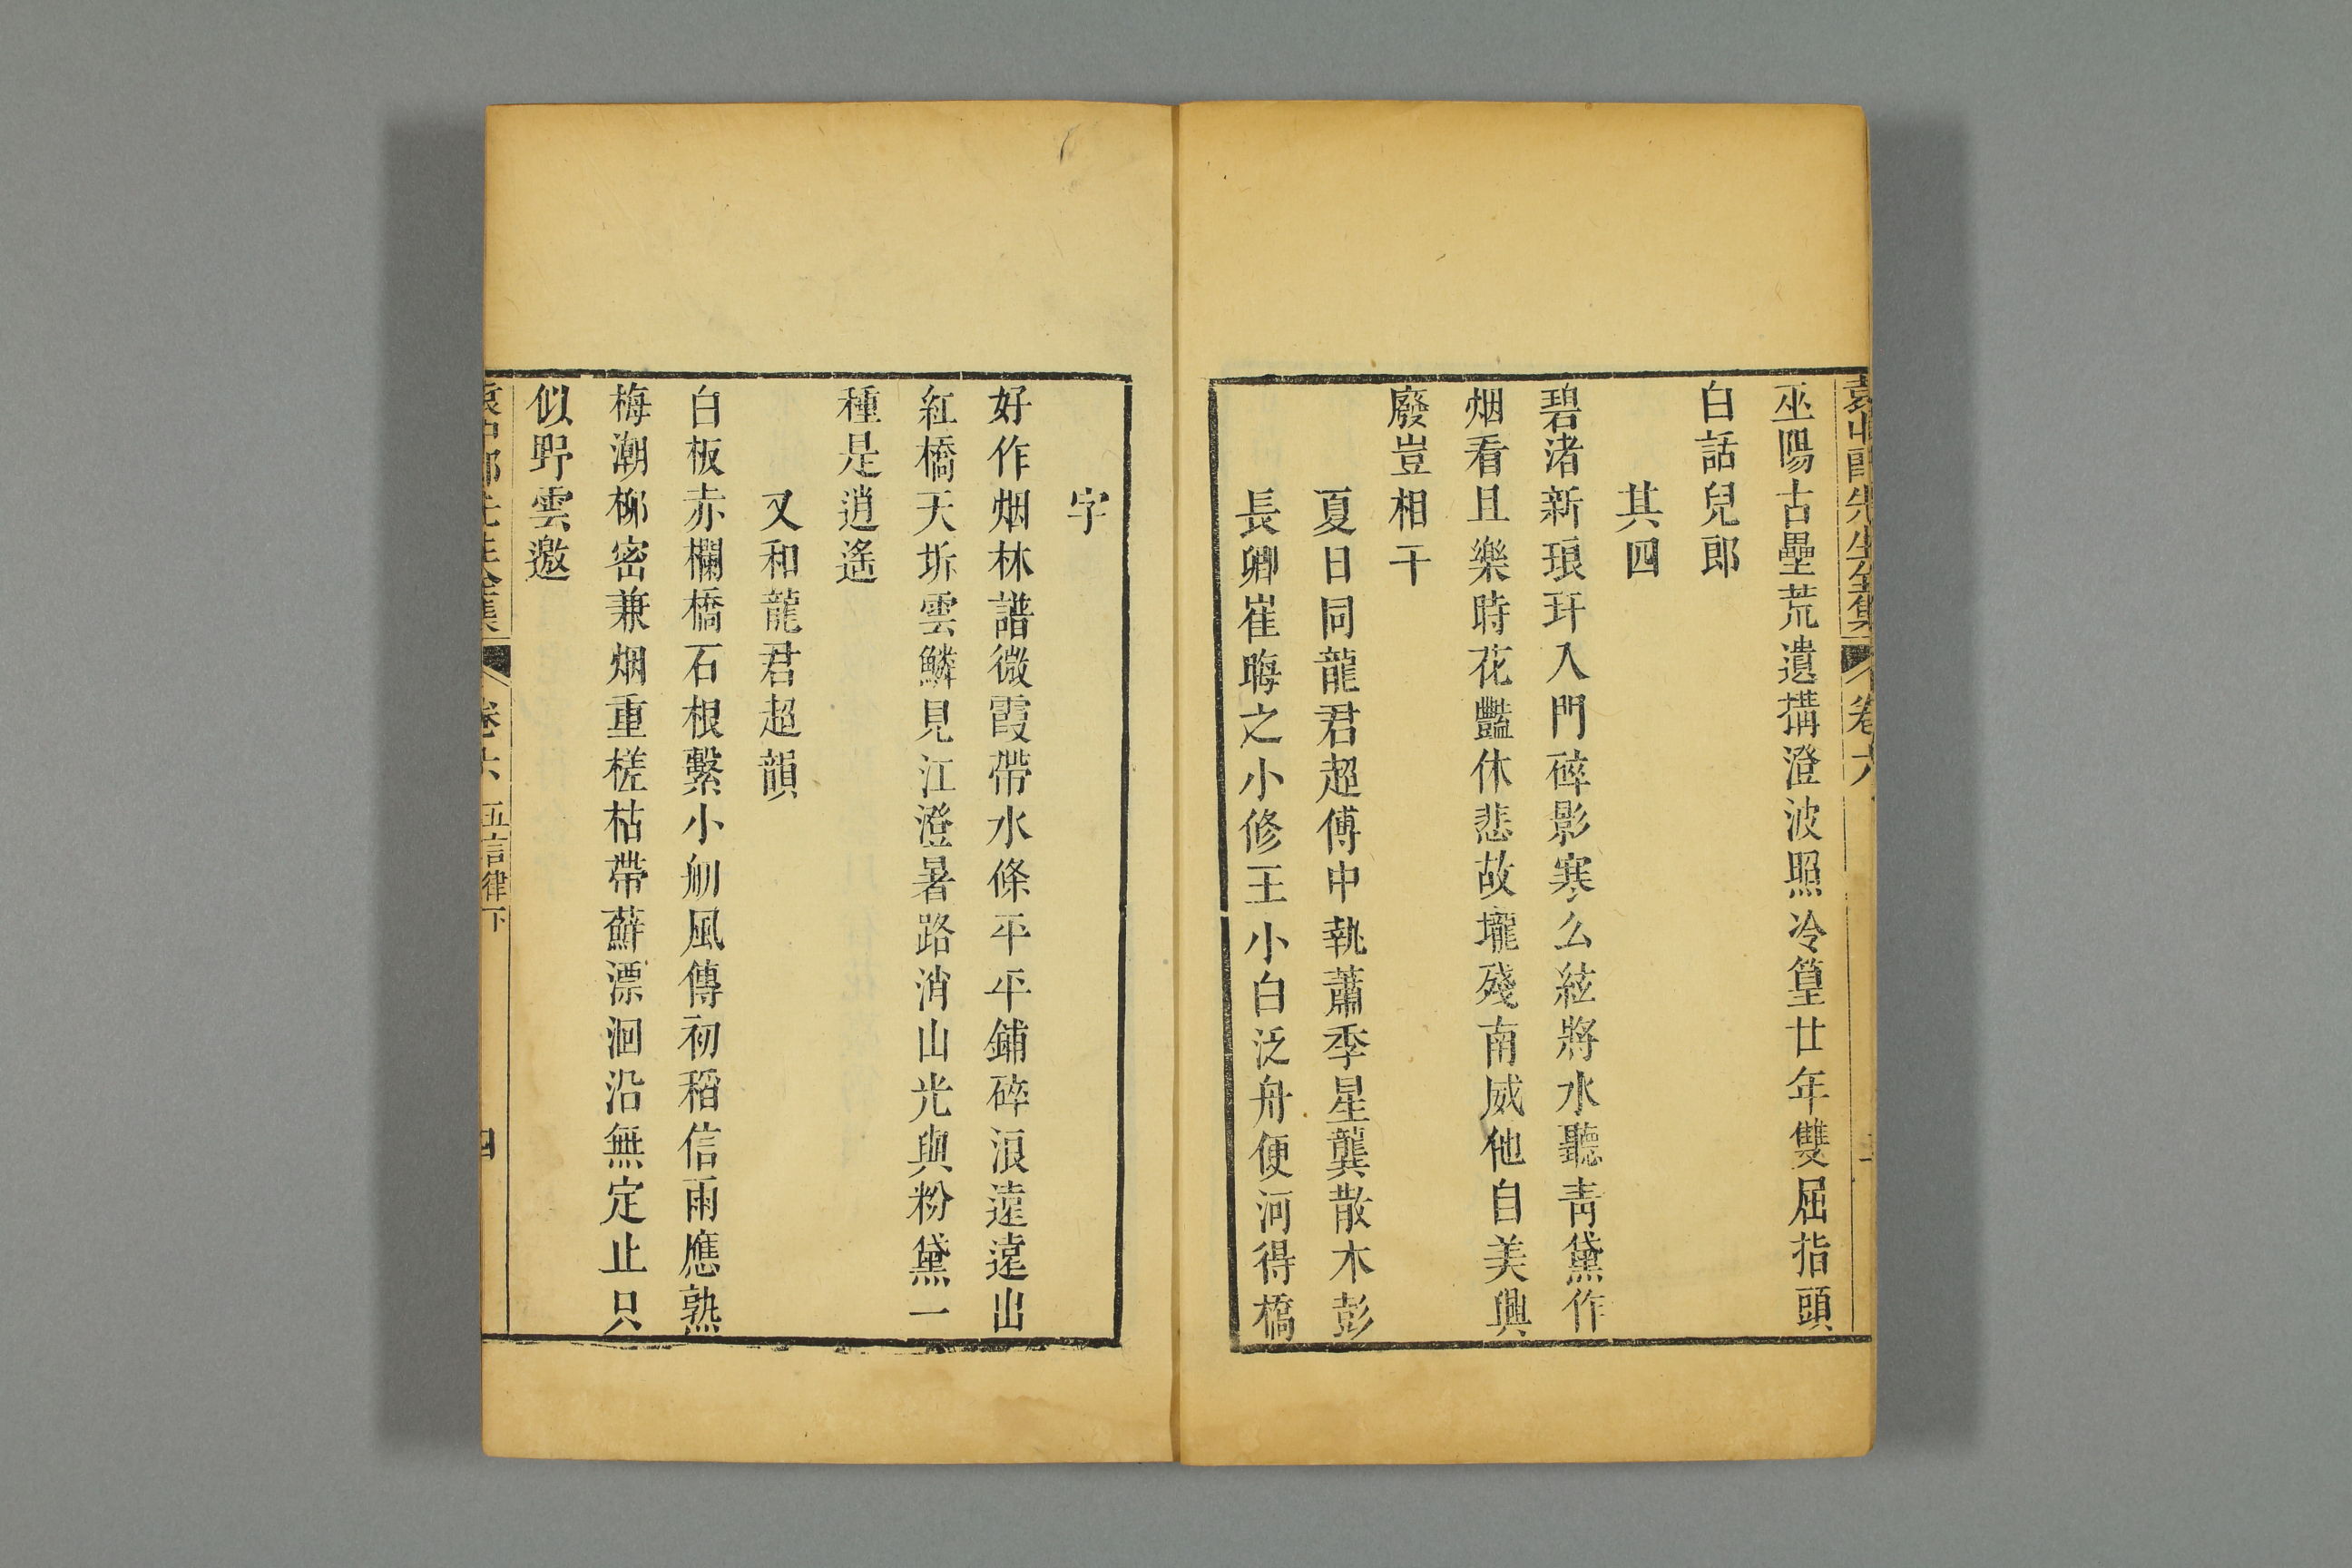 袁中郎先生全集 卷六
巫陽古壘荒遺搆澄波照冷篁廿年雙屈指頭
白話兒郎
其四
碧渚新琅玕入門碎影寒么絃將水聽青黛作
烟看且樂時花豔休悲故壠殘南威他自美興
廢豈相干
夏日同龍君超傅中執蕭季星龔散木彭
長卿崔晦之小修王小白泛舟便河得橋
字
好作烟林譜微霞帶水條平平鋪碎浪遠遠出
紅橋天坼雲鱗見江澄暑路消山光與粉黛一
種是逍遙
又和龍君超韻
白板赤欄橋石根繫小舠風傳初稻信雨應熟
梅潮柳密兼烟重槎枯帶蘚漂洄沿無定止只
似野雲邀
袁中郎先生全集 卷六 五言律下 四